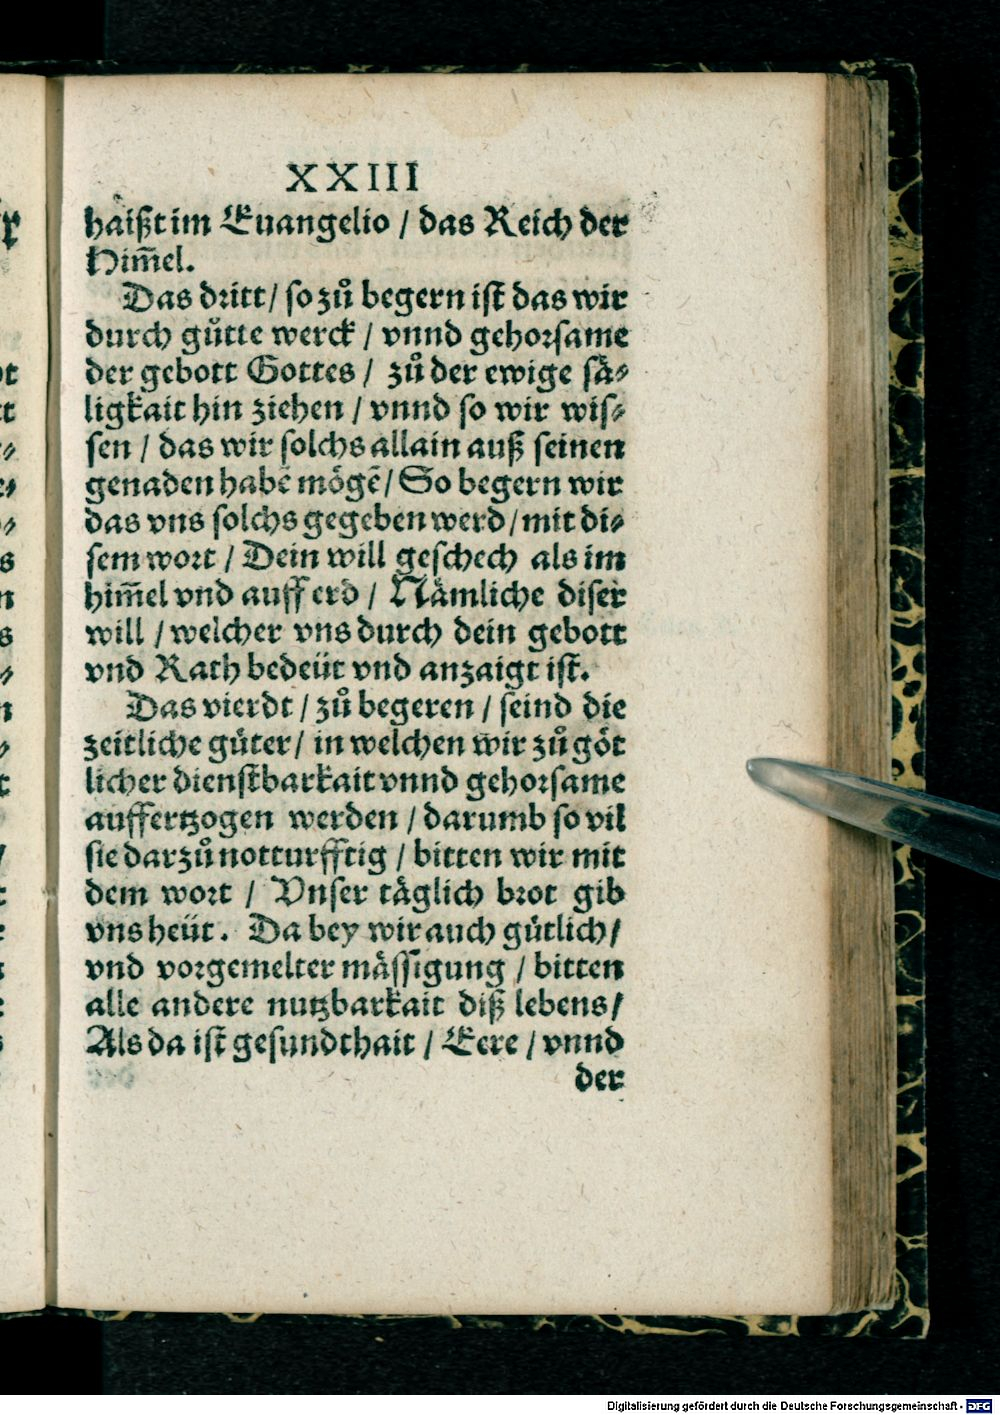 XXIII
haißt im Euangelio / das Reich der
Him̄el.
Das dritt / so zů begern ist das wir
durch gůtte werck / vnnd gehorsame
der gebott Gottes / zů der ewige sä⸗
ligkait hin ziehen / vnnd so wir wis⸗
sen / das wir solchs allain auß seinen
genaden habē mögē / So begern wir
das vns solchs gegeben werd / mit di⸗
sem wort / Dein will geschech als im
him̄el vnd auff erd / Nämliche diser
will / welcher vns durch dein gebott
vnd Rath bedeüt vnd anzaigt ist.
Das vierdt / zů begeren / seind die
zeitliche güter / in welchen wir zů göt
licher dienstbarkait vnnd gehorsame
auffertzogen werden / darumb so vil
sie darzů notturfftig / bitten wir mit
dem wort / Vnser täglich brot gib
vns heüt. Da bey wir auch gütlich /
vnd vorgemelter mässigung / bitten
alle andere nutzbarkait diß lebens /
Als da ist gesundthait / Eere / vnnd
der
Digitalisierung gefördert durch die Deutsche Forschungsgemeinschaft - DFG